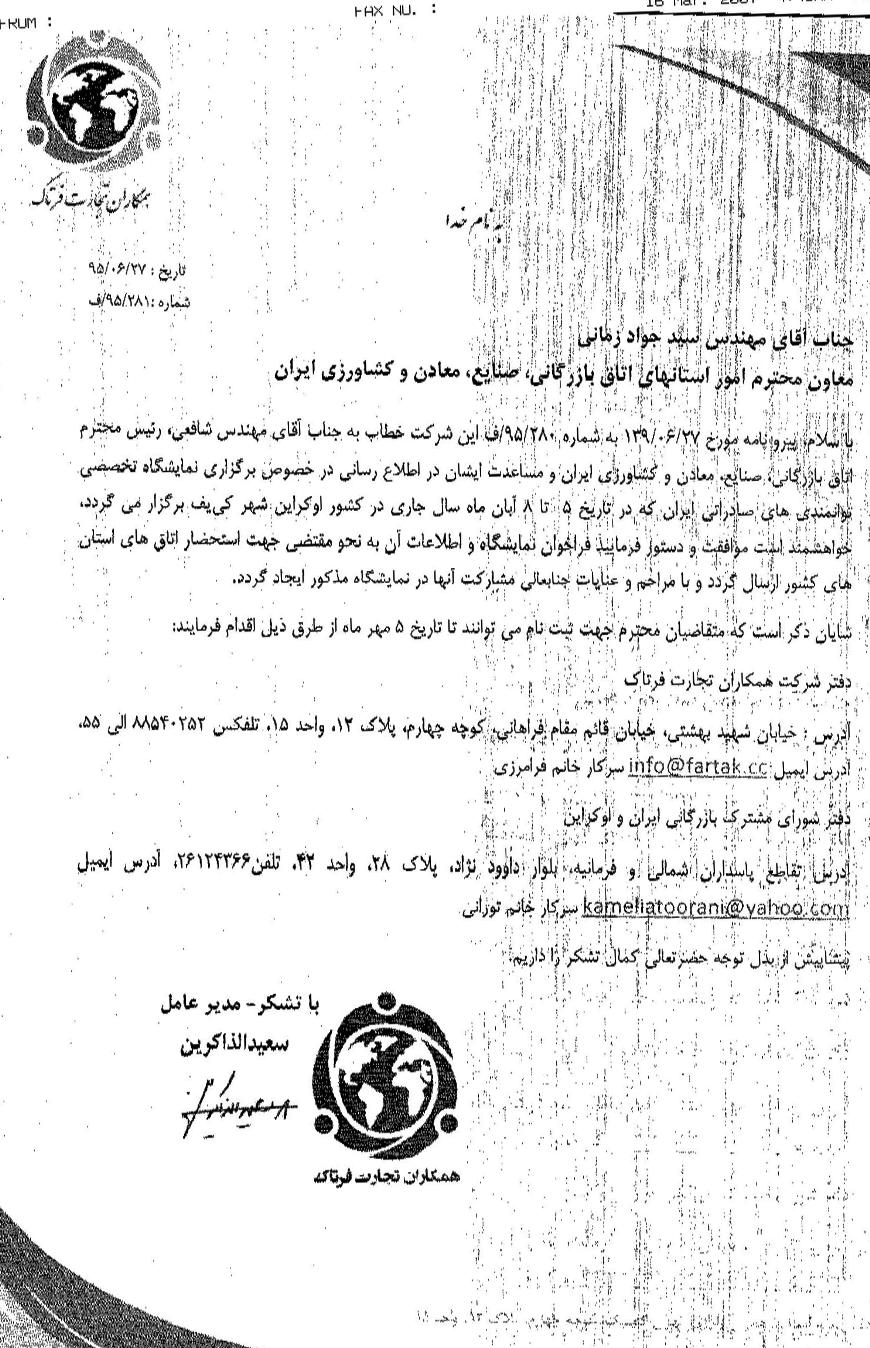 FROM :
FAX NO. :
16 Mar. 2001
همکاران تجارت فرتاک
به نام خدا
تاریخ : ۹۵/۰۶/۲۷
شماره :۹۵/۲۸۱/ف
جناب آقای مهندس سید جواد زمانی
معاون محترم امور استانهای اتاق بازرگانی، صنایع، معادن و کشاورزی ایران
با سلام، پیرو نامه مورخ ۱۳۹/۰۶/۲۷ به شماره ۹۵/۲۸۰/ف این شرکت خطاب به جناب آقای مهندس شافعی، رئیس محترم
اتاق بازرگانی، صنایع، معادن و کشاورزی ایران و مساعدت ایشان در اطلاع رسانی در خصوص برگزاری نمایشگاه تخصصی
توانمندی های صادراتی ایران که در تاریخ ۵ تا ۸ آبان ماه سال جاری در کشور اوکراین شهر کی‌یف برگزار می گردد،
خواهشمند است موافقت و دستور فرمایید فراخوان نمایشگاه و اطلاعات آن به نحو مقتضی جهت استحضار اتاق های استان
های کشور ارسال گردد و با مراحم و عنایات جنابعالی مشارکت آنها در نمایشگاه مذکور ایجاد گردد.
شایان ذکر است که متقاضیان محترم جهت ثبت نام می توانند تا تاریخ ۵ مهر ماه از طرق ذیل اقدام فرمایند:
دفتر شرکت همکاران تجارت فرتاک
آدرس : خیابان شهید بهشتی، خیابان قائم مقام فراهانی، کوچه چهارم، پلاک ۱۲، واحد ۱۵، تلفکس ۸۸۵۴۰۲۵۲ الی ۵۵،
آدرس ایمیل info@fartak.cc سرکار خانم فرامرزی
دفتر شورای مشترک بازرگانی ایران و اوکراین
آدرس تقاطع پاسداران شمالی و فرمانیه، بلوار داوود نژاد، پلاک ۲۸، واحد ۴۲، تلفن۲۶۱۲۴۳۶۶، آدرس ایمیل
kameliatoorani@yahoo.com سرکار خانم تورانی
پیشاپیش از بذل توجه حضرتعالی کمال تشکر را داریم.
با تشکر- مدیر عامل
سعیدالذاکرین
همکاران تجارت فرتاک
کوچه چهارم پلاک ۱۲، واحد ۱۵